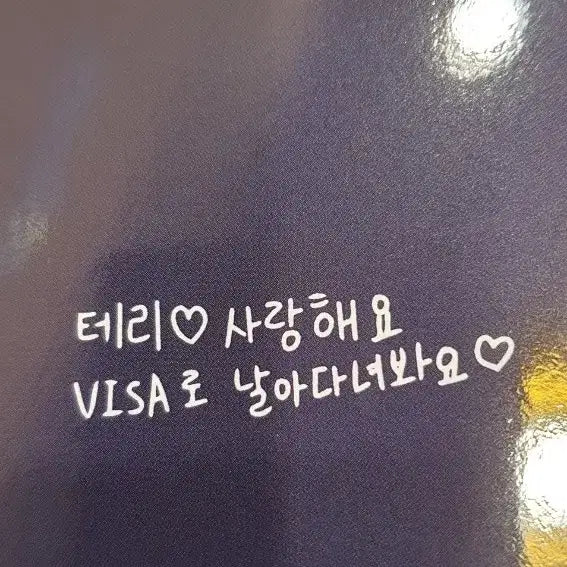 테리♡ 사랑해요
VISA로 날아다녀봐요♡